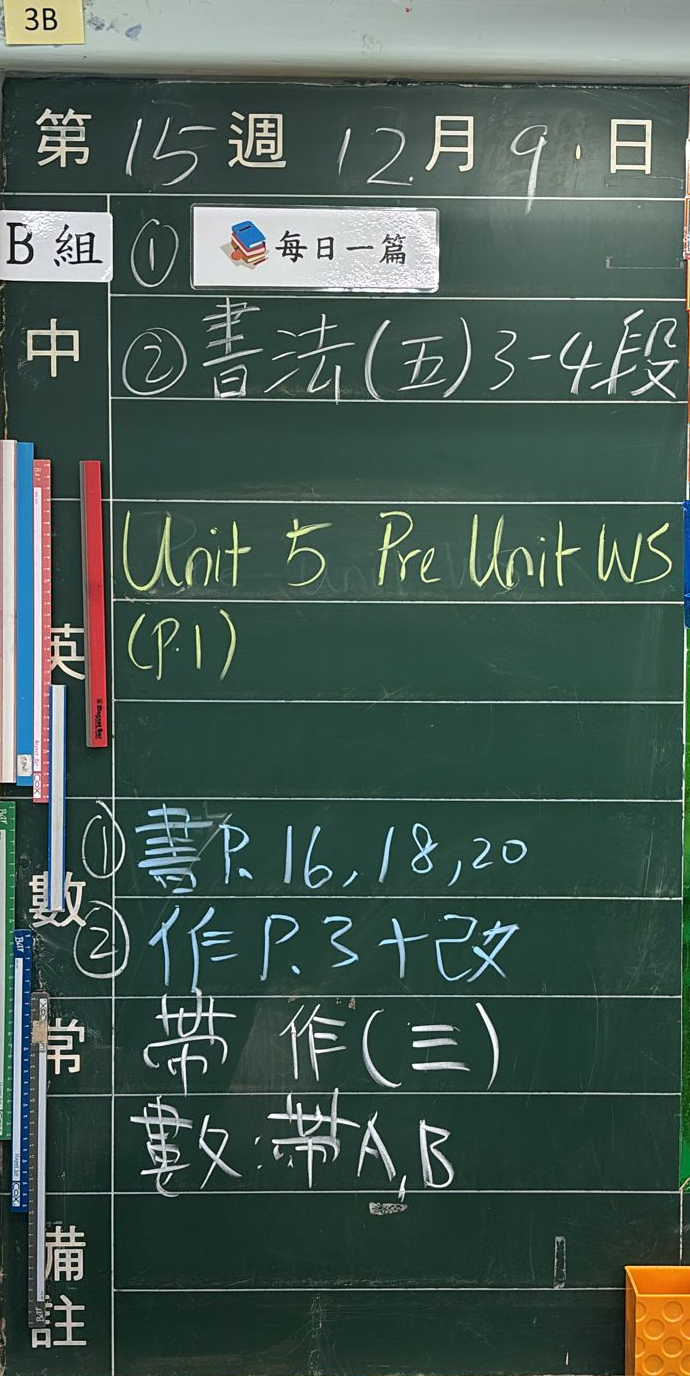 3B
第 15 週 12 月 9 日
B 組 ① 每日一篇
中 ② 書法(五) 3-4段
Unit 5 Pre Unit WS
英 (P.1)
① 書P. 16, 18, 20
數 ② 作 P. 3 + 改
常 帶 作(三)
數:帶A,B
備
註